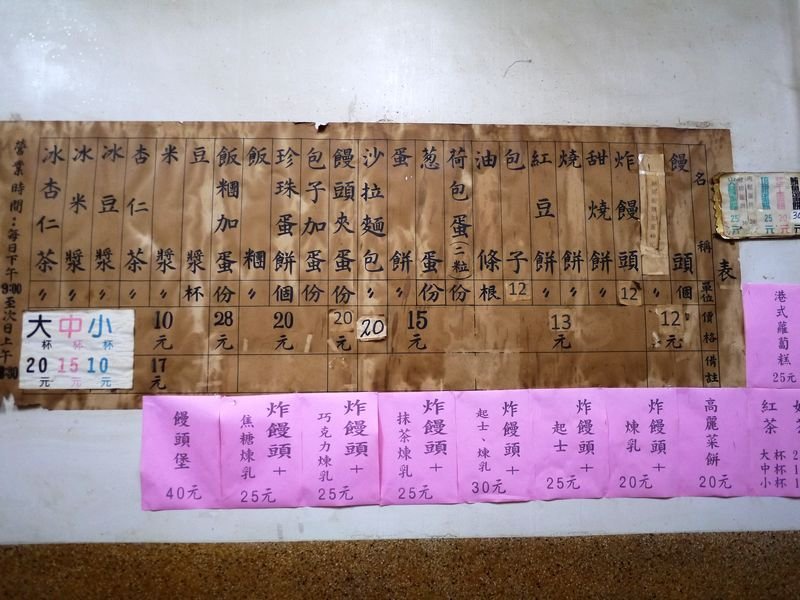 名稱
單位
價格
備註
表
饅頭
個
12元
炸饅頭
12
甜燒餅
〃
燒餅
〃
13元
紅豆餅
〃
包子
12
油條
根
荷包蛋(二粒)
份
葱蛋
份
15元
蛋餅
〃
沙拉麵包
〃
20
饅頭夾蛋
份
20元
包子加蛋
份
珍珠蛋餅
個
20元
飯糰
〃
飯糰加蛋
份
28元
豆漿
杯
米漿
〃
10元
17元
杏仁茶
〃
冰豆漿
〃
冰米漿
〃
冰杏仁茶
〃
大杯 中杯 小杯
20元 15元 10元
營業時間:每日下午9:00至次日上午
港式蘿蔔糕
25元
饅頭堡
40元
炸饅頭+
焦糖煉乳
25元
炸饅頭+
巧克力煉乳
25元
炸饅頭+
抹茶煉乳
25元
炸饅頭+
起士、煉乳
30元
炸饅頭+
起士
25元
炸饅頭+
煉乳
20元
高麗菜餅
20元
紅茶
大杯
中杯
小杯